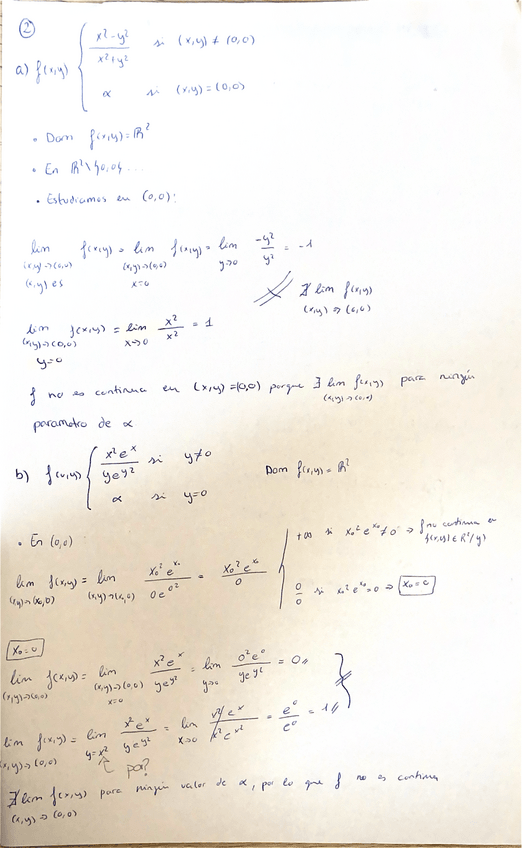 ②
a) f(x,y) { (x²-y²)/(x²+y²) si (x,y) ≠ (0,0)
α si (x,y) = (0,0)
• Dom f(x,y) = ℝ²
• En ℝ²\{0,0} ...
• Estudiamos en (0,0):
lim (x,y)→(0,0) f(x,y) = lim (x,y)→(0,0) x=0 f(x,y) = lim y→0 -y²/y² = -1
∄ lim f(x,y) (x,y)→(0,0)
lim (x,y)→(0,0) y=0 f(x,y) = lim x→0 x²/x² = 1
f no es continua en (x,y)=(0,0) porque ∄ lim f(x,y) (x,y)→(0,0) para ningún
parametro de α
b) f(x,y) { x²eˣ/ye^y² si y≠0 Dom f(x,y) = ℝ²
α si y=0
• En (0,0):
lim (x,y)→(x₀,0) f(x,y) = lim (x,y)→(x₀,0) x₀²e^x₀/0e^0² = x₀²e^x₀/0
+∞ si x₀²e^x₀ ≠ 0 ⇒ f no continua en f(x,y) ∈ ℝ²/y)
0/0 si x₀²e^x₀ = 0 ⇒ x₀=0
x₀=0
lim (x,y)→(0,0) f(x,y) = lim (x,y)→(0,0) x=0 x²eˣ/ye^y² = lim y→0 0²e⁰/ye^y² = 0
lim (x,y)→(0,0) f(x,y) = lim y=x² x²eˣ/ye^y² = lim x→0 x²eˣ/x²e^x² = e⁰/e⁰ = 1
por?
∄ lim f(x,y) (x,y)→(0,0) para ningun valor de α, por lo que f no es continua